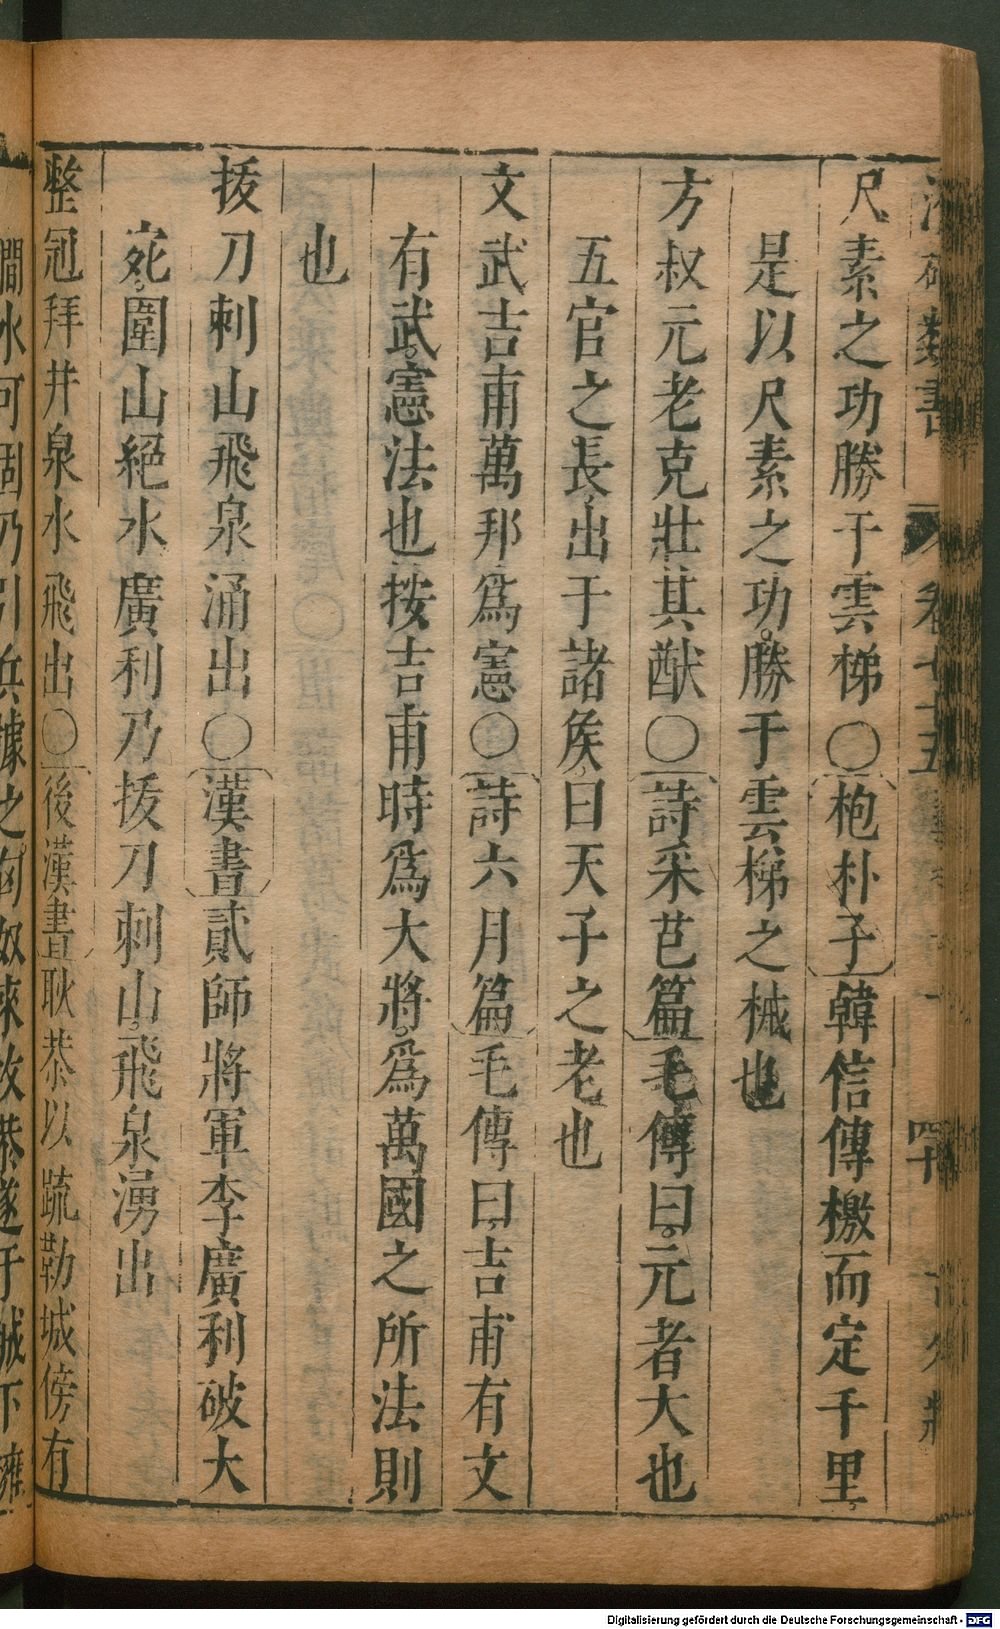 尺素之功勝于雲梯○抱朴子韓信傳檄而定千里
是以尺素之功勝于雲梯之械也
方叔元老克壯其猷○詩采芑篇毛傳曰元者大也
五官之長出于諸矦曰天子之老也
文武吉甫萬邦爲憲○詩六月篇毛傳曰吉甫有文
有武憲法也按吉甫時爲大將爲萬國之所法則
也
拔刀刺山飛泉涌出○漢書貳師將軍李廣利破大
宛圍山絕水廣利乃拔刀刺山飛泉湧出
整冠拜井泉水飛出○後漢書耿恭以疏勒城傍有
澗水可固乃引兵據之匈奴來攻恭遂于城下擁
類書
卷七十五
四十
Digitalisierung gefördert durch die Deutsche Forschungsgemeinschaft - DFG